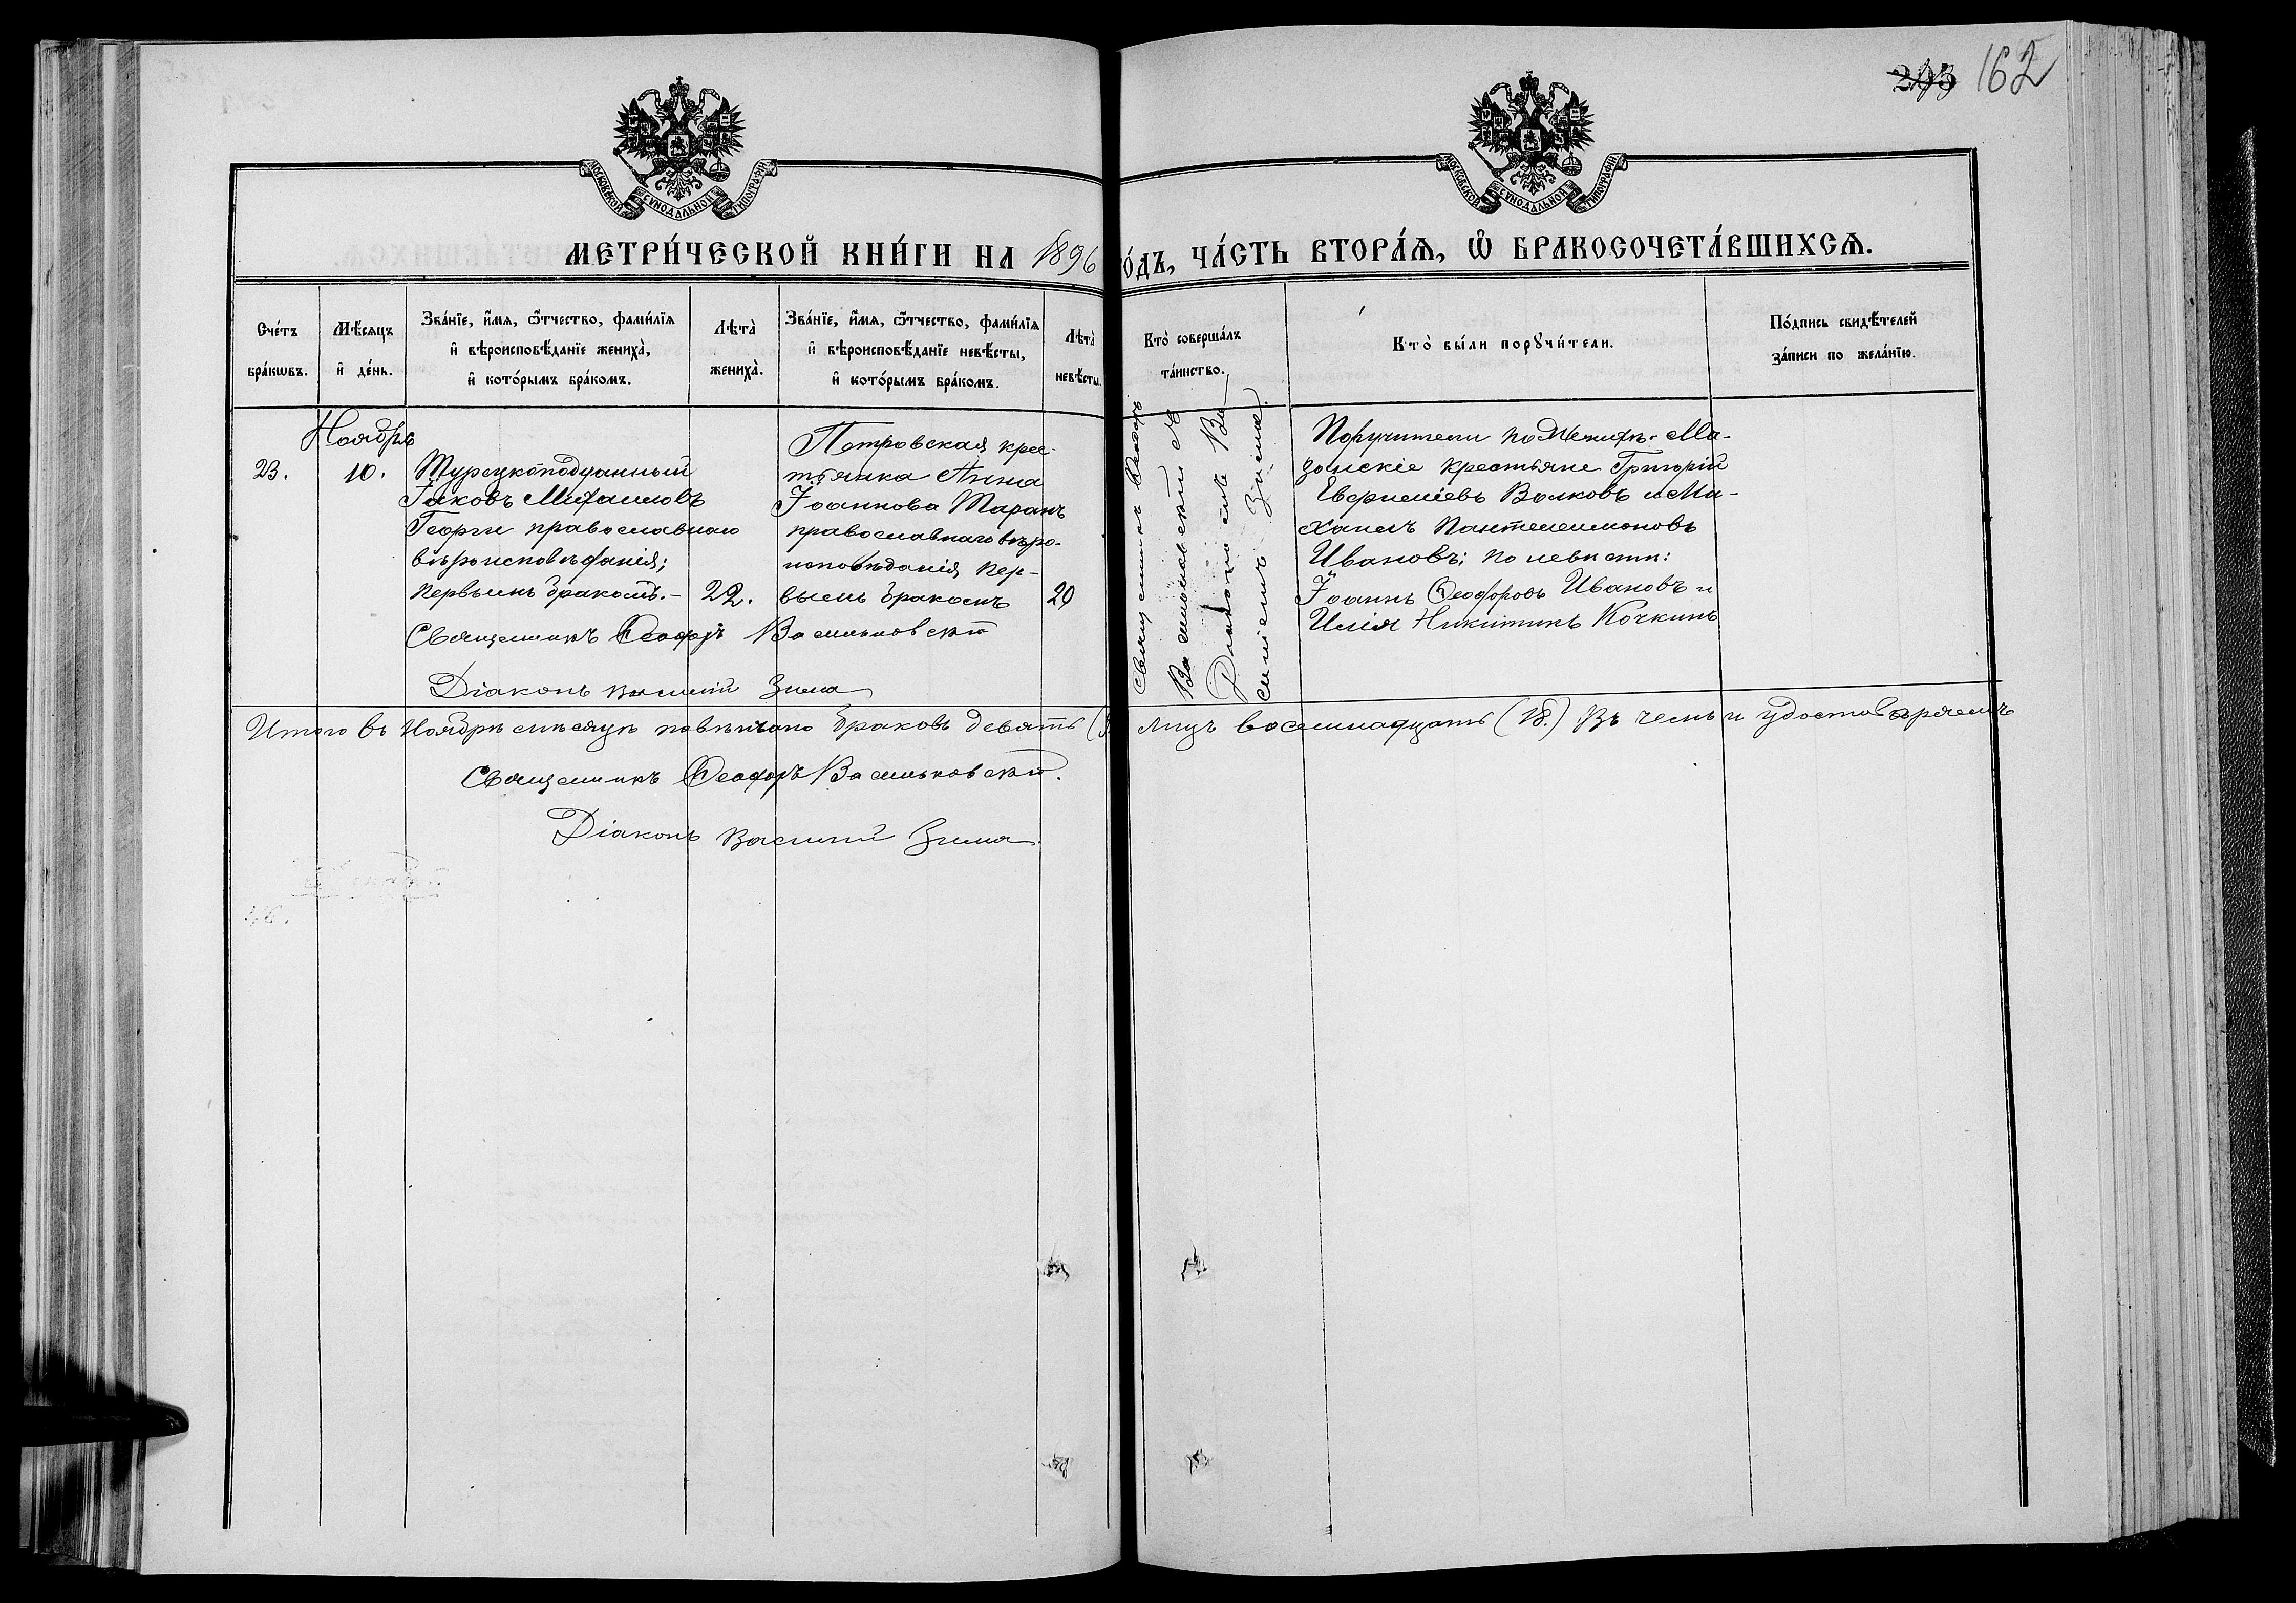 203 162
МОСКОВСКОЙ СУНОДАЛЬНОЙ ТИПОГРАФІИ
МОСКОВСКОЙ СУНОДАЛЬНОЙ ТИПОГРАФІИ
МЕТРИ́ЧЕСКОЙ КНИ́ГИ НА 1896
О́ДЪ, ЧА́СТЬ ВТОРА́Ѧ, Ѡ҆ БРАКОСОЧЕТА́ВШИХСѦ.
Сче́тъ
бра́кѡвъ.
Мѣ́сяцъ
и҆ де́нь.
Зва́нїе, и҆́мя, ѻ҆́тчество, фами́лїя
и҆ вѣроисповѣ́данїе жениха̀,
и҆ кото́рымъ бра́комъ.
Лѣта̀
жениха̀.
Зва́нїе, и҆́мя, ѻ҆́тчество, фами́лїя
и҆ вѣроисповѣ́данїе невѣ́сты,
и҆ кото́рымъ бра́комъ.
Лѣта̀
невѣ́сты.
Кто̀ соверша́лъ
та́инство.
Кто̀ бы́ли порꙋчи́тели.
По́дпись свидѣ́телей
за́писи по жела́нїю.
Ноября
23.
10.
Турецкоподданный
Іаковъ Михаиловъ
Георги православнаго
вѣроисповѣданія;
первымъ бракомъ.-
22.
Петровская крес-
тьянка Анна
Іоаннова Таранъ
православнаго вѣро-
исповѣданія, пер-
вымъ бракомъ
20
Священникъ Ѳеодоръ Васильковскій
Діаконъ Василій Зима
Священникъ Ѳеодоръ
Васильковскій съ
Діакономъ Ва-
силіемъ Зимою.
Поручители по Женихѣ: Ма-
зонскіе крестьяне Григорій
Евфиміевъ Волковъ и Ми-
хаилъ Пантелеимоновъ
Ивановъ; по невѣстѣ:
Іоаннъ Ѳеодоровъ Ивановъ и
Илія Никитинъ Кочкинъ
Итого въ Ноябрѣ мѣсяцѣ повѣнчано браковъ девять лицъ восемнадцать (18.) Въ чемъ и удостовѣряемъ
Священникъ Ѳеодоръ Васильковскій.
Діаконъ Василій Зима.